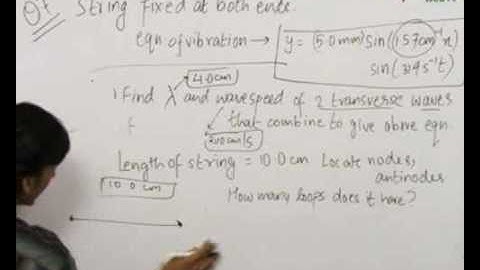 String fixed at both ends.
eqn of vibration → y = (5.0mm) sin(1.57cm⁻¹x)
sin(314s⁻¹t)
4.0cm
Find λ and wavespeed of 2 transverse waves
that combine to give above eqn.
200cm/s
Length of string = 10.0cm Locate nodes,
antinodes
10.0cm
How many loops does it have?